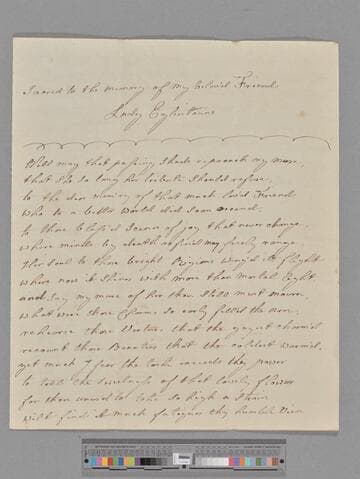 Sacred to the memory of my belov'd Friend
Lady Eglintoune
Well may that passing Shade reproach my muse,
that She so long her tribute Should refuse,
to the dear memory of that much lov'd Friend
who to a better world did soon ascend,
to those Celestial Scenes of joy that never change,
where minds by death refin'd may freely range.
Her Soul to those bright Regions wing'd its flight
where now it Shines with more than mortal light
and Say my muse of her thou Still must mourn
what were those Charms So early
rehearse those Virtues that the gayest charm'd
recount those Beauties that the coldest warm'd.
yet much I fear the task exceeds thy power
to tell the Sweetness of that lovely flower
for thou unused to take So high a Strain
will find it much fatigues thy humble Vein